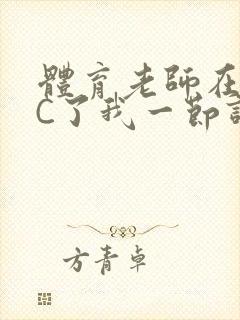 體育老師在
C了我一節
方青卓